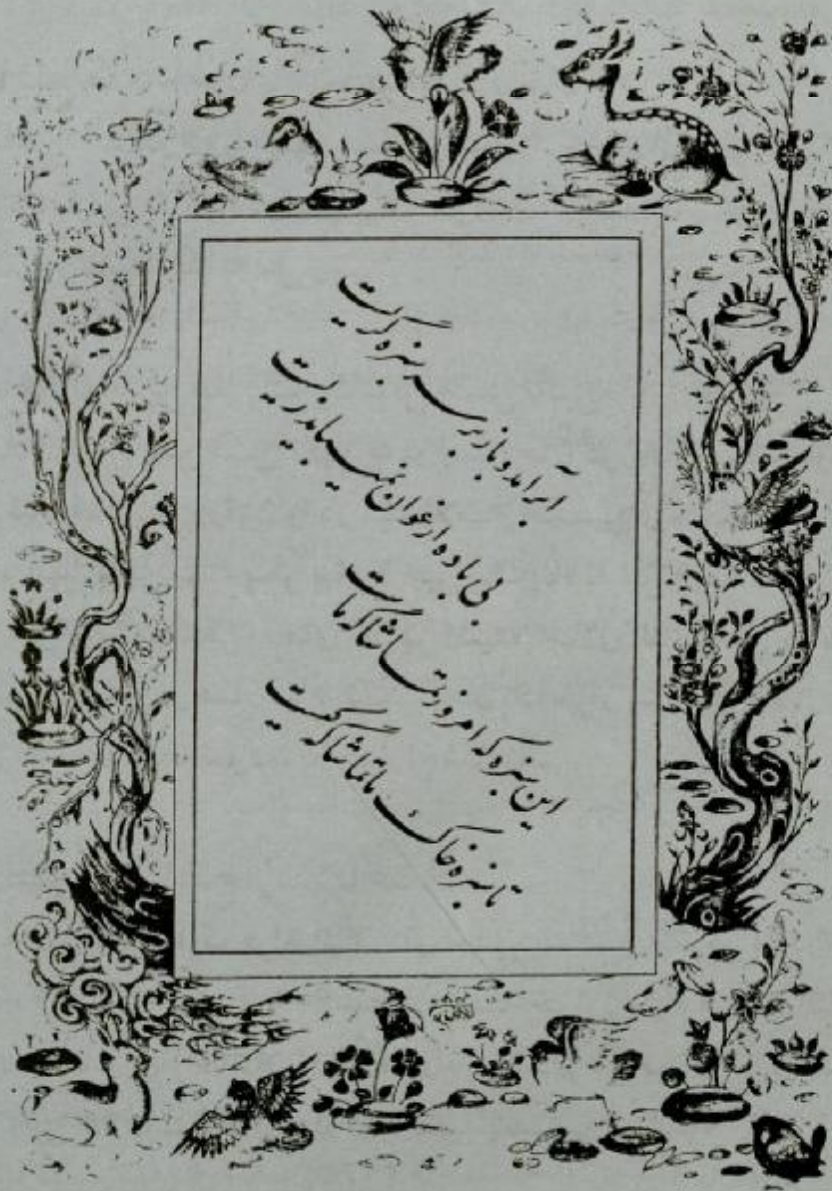 ابر آمد و باز بر سر سبزه گریست
بی باده ارغوان نمیباید زیست
این سبزه که امروز تماشاگه ماست
تا سبزه خاک ما تماشاگه کیست